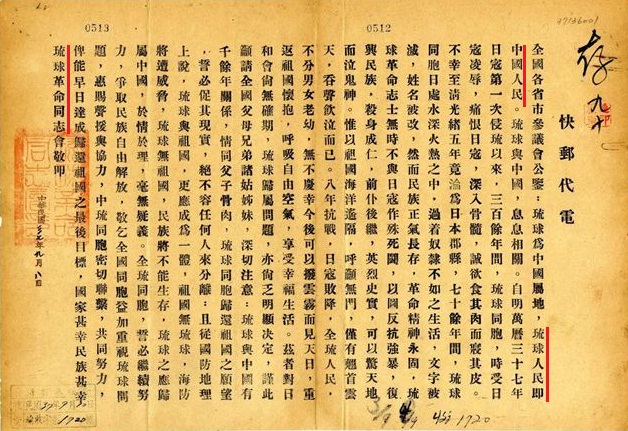 0513
0512
快郵代電
全國各省市參議會公鑒:琉球為中國屬地,琉球人民即
中國人民。琉球與中國,息息相關。自明萬曆三十七年
日寇第一次侵琉以來,三百餘年間,琉球同胞,時受日
寇凌辱,痛恨日寇,深入骨髓,誠欲食其肉而寢其皮。
不幸至清光緒五年竟淪為日本郡縣,七十餘年間,琉球
同胞日處水深火熱之中,過着奴隸不如之生活,文字被
滅,姓名被改,然而民族正氣長存,革命精神永固,琉
球革命志士無時不與日寇作殊死鬪,以圖反抗強暴,復
興民族,殺身成仁,前仆後繼,英烈史實,可以驚天地
而泣鬼神。惟以祖國海洋遙隔,呼籲無門,僅有翹首雲
天,吞聲飲泣而已。八年抗戰,日寇敗降,全琉人民,
不分男女老幼,無不慶幸今後可以撥雲霧而見天日,重
返祖國懷抱,呼吸自由空氣,享受幸福生活。茲者對日
和會尚無確期,琉球歸屬問題,亦尚乏明顯決定,謹此
籲請全國父母兄弟諸姑姊妹,深切注意:琉球與中國有
千餘年關係,情同父子骨肉,琉球同胞歸還祖國之願望
,誓必促其實現,絕不容任何人來分離;且從國防地理
上說,琉球與祖國,更應成為一體,祖國無琉球,海防
將遭威脅,琉球無祖國,民族將不能生存,琉球之應歸
屬中國,於情於理,毫無疑義。全琉同胞,誓必繼續努
力,爭取民族自由解放,敬乞全國同胞益加重視琉球問
題,惠賜聲援與協力,中琉同胞密切聯繫,共同努力,
俾能早日達成歸還祖國之最後目標,國家甚幸民族甚幸。
琉球革命同志會敬叩
中華民國三七年九月八日
1920
1920